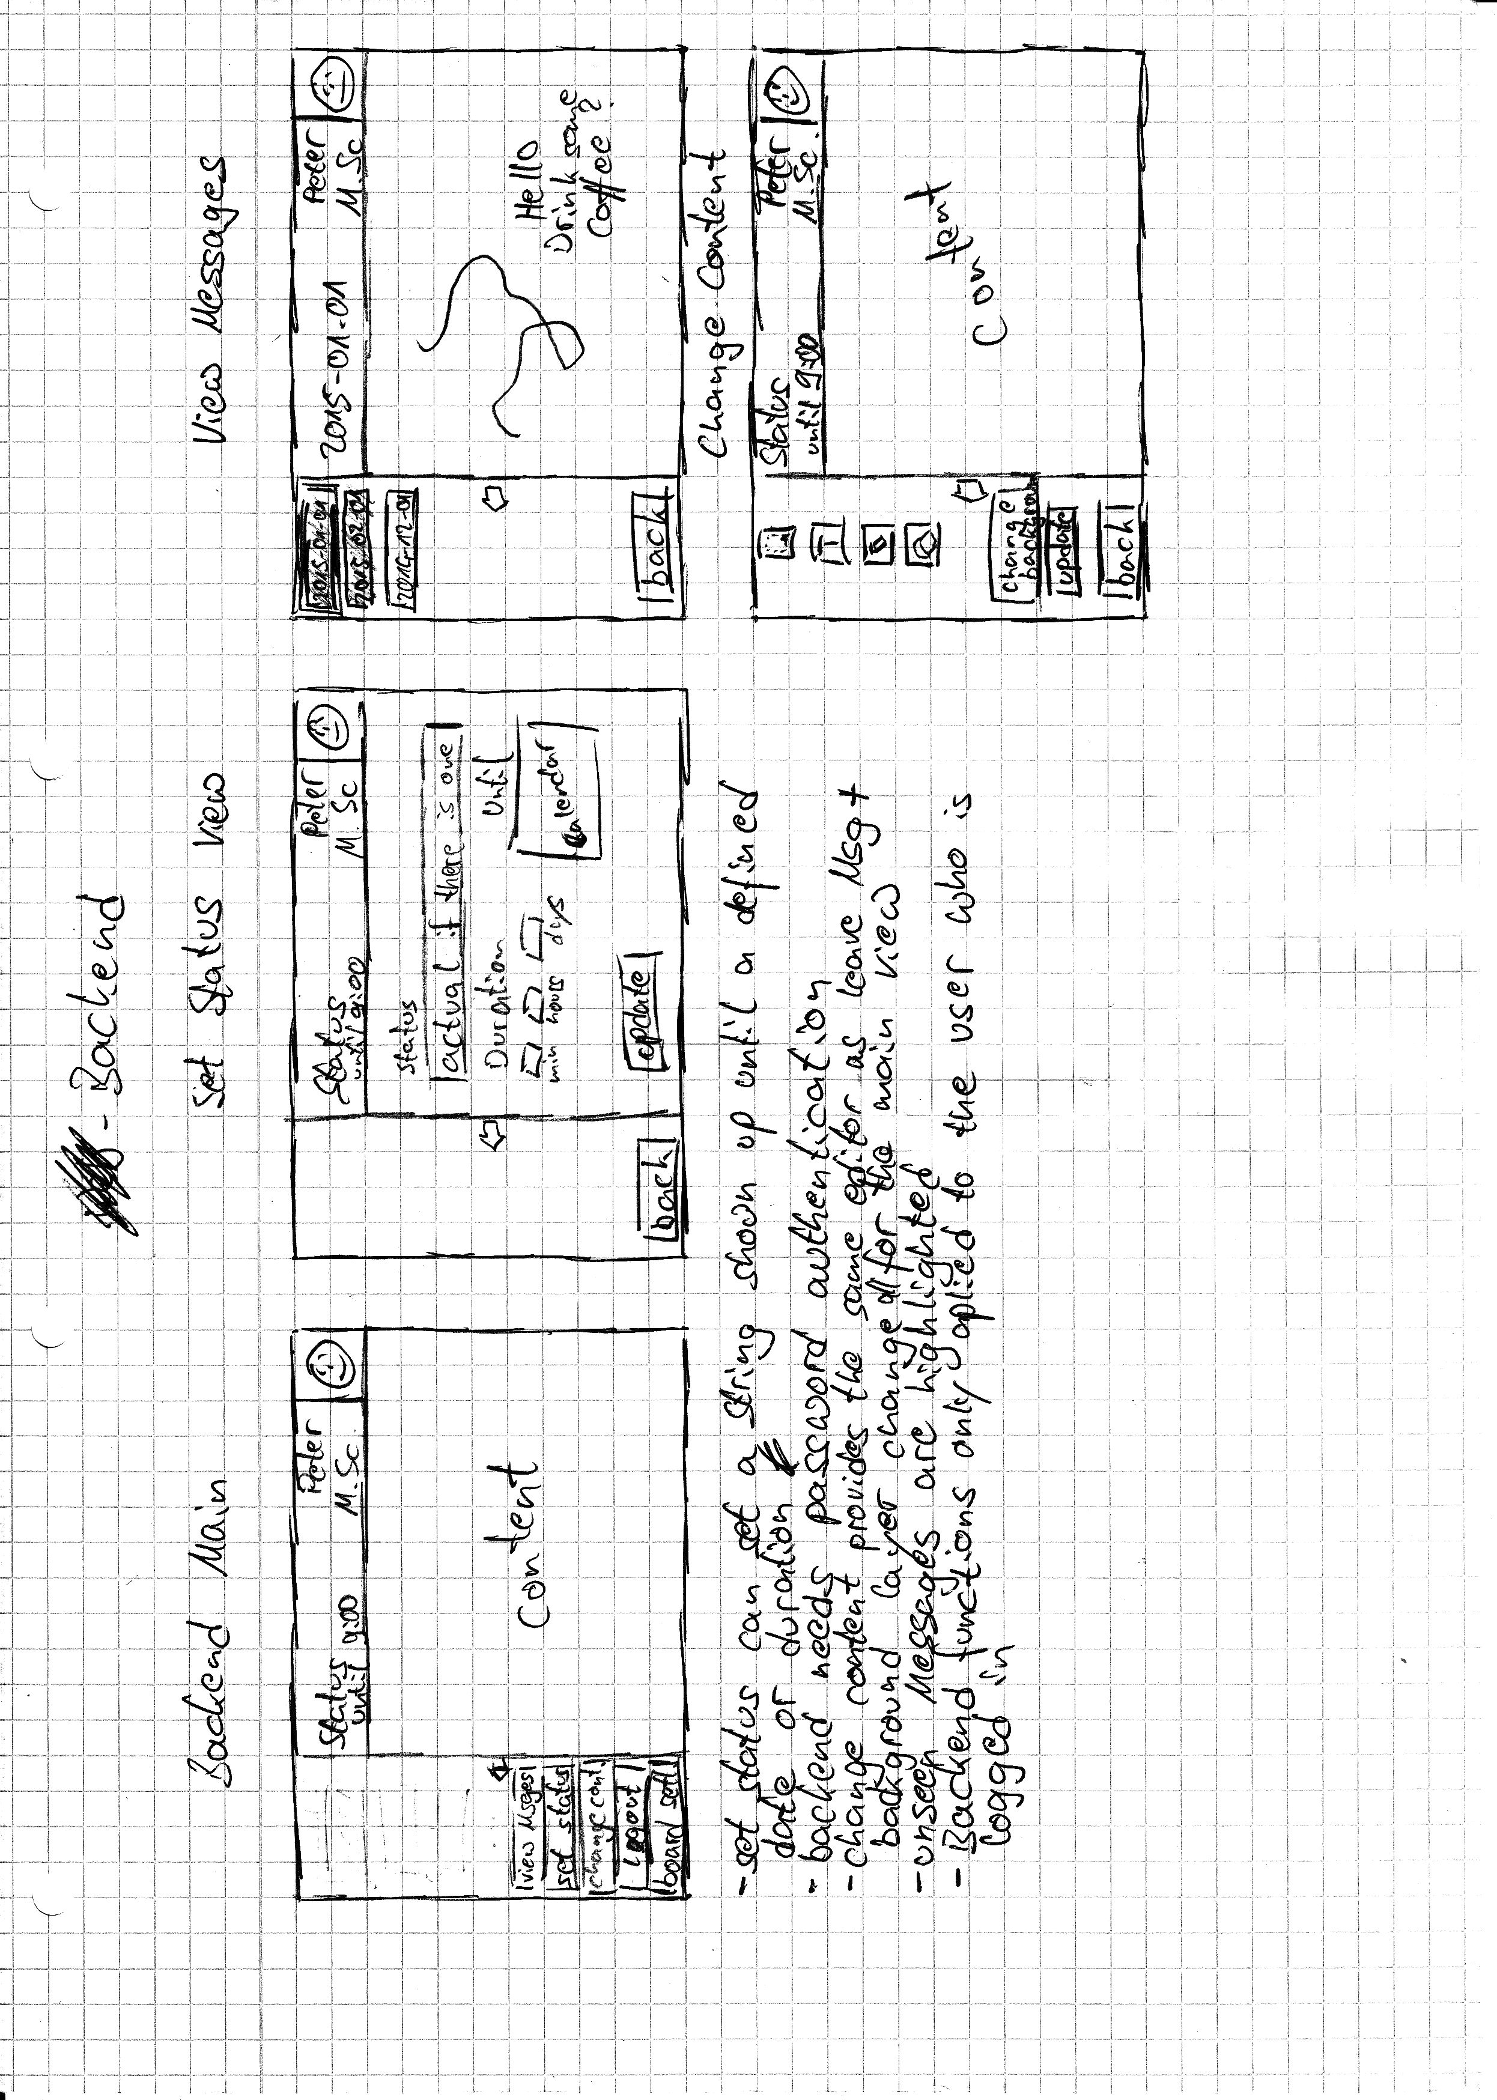 - Backend
Backend Main
Status
until 9:00
Peter
M. Sc
content
view Msges
set status
change cont
Logout
board sett
Set Status View
Status
until 9:00
Peter
M. Sc
Status
actual if there is one
Duration
Until
min hours days
calendar
update
back
View Messages
2015-01-01
2015-02-01
2014-12-01
2015-01-01
Peter
M. Sc
Hello
Drink some
Coffee?
back
Change Content
Status
until 9:00
Peter
M. Sc.
T
content
change
background
update
back
- set status can set a string shown up until a defined
date or duration
- backend needs password authentication
- change content provides the same editor as leave Msg +
background layer change for the main view
- unseen Messages are highlighted
- Backend functions only aplied to the user who is
logged in